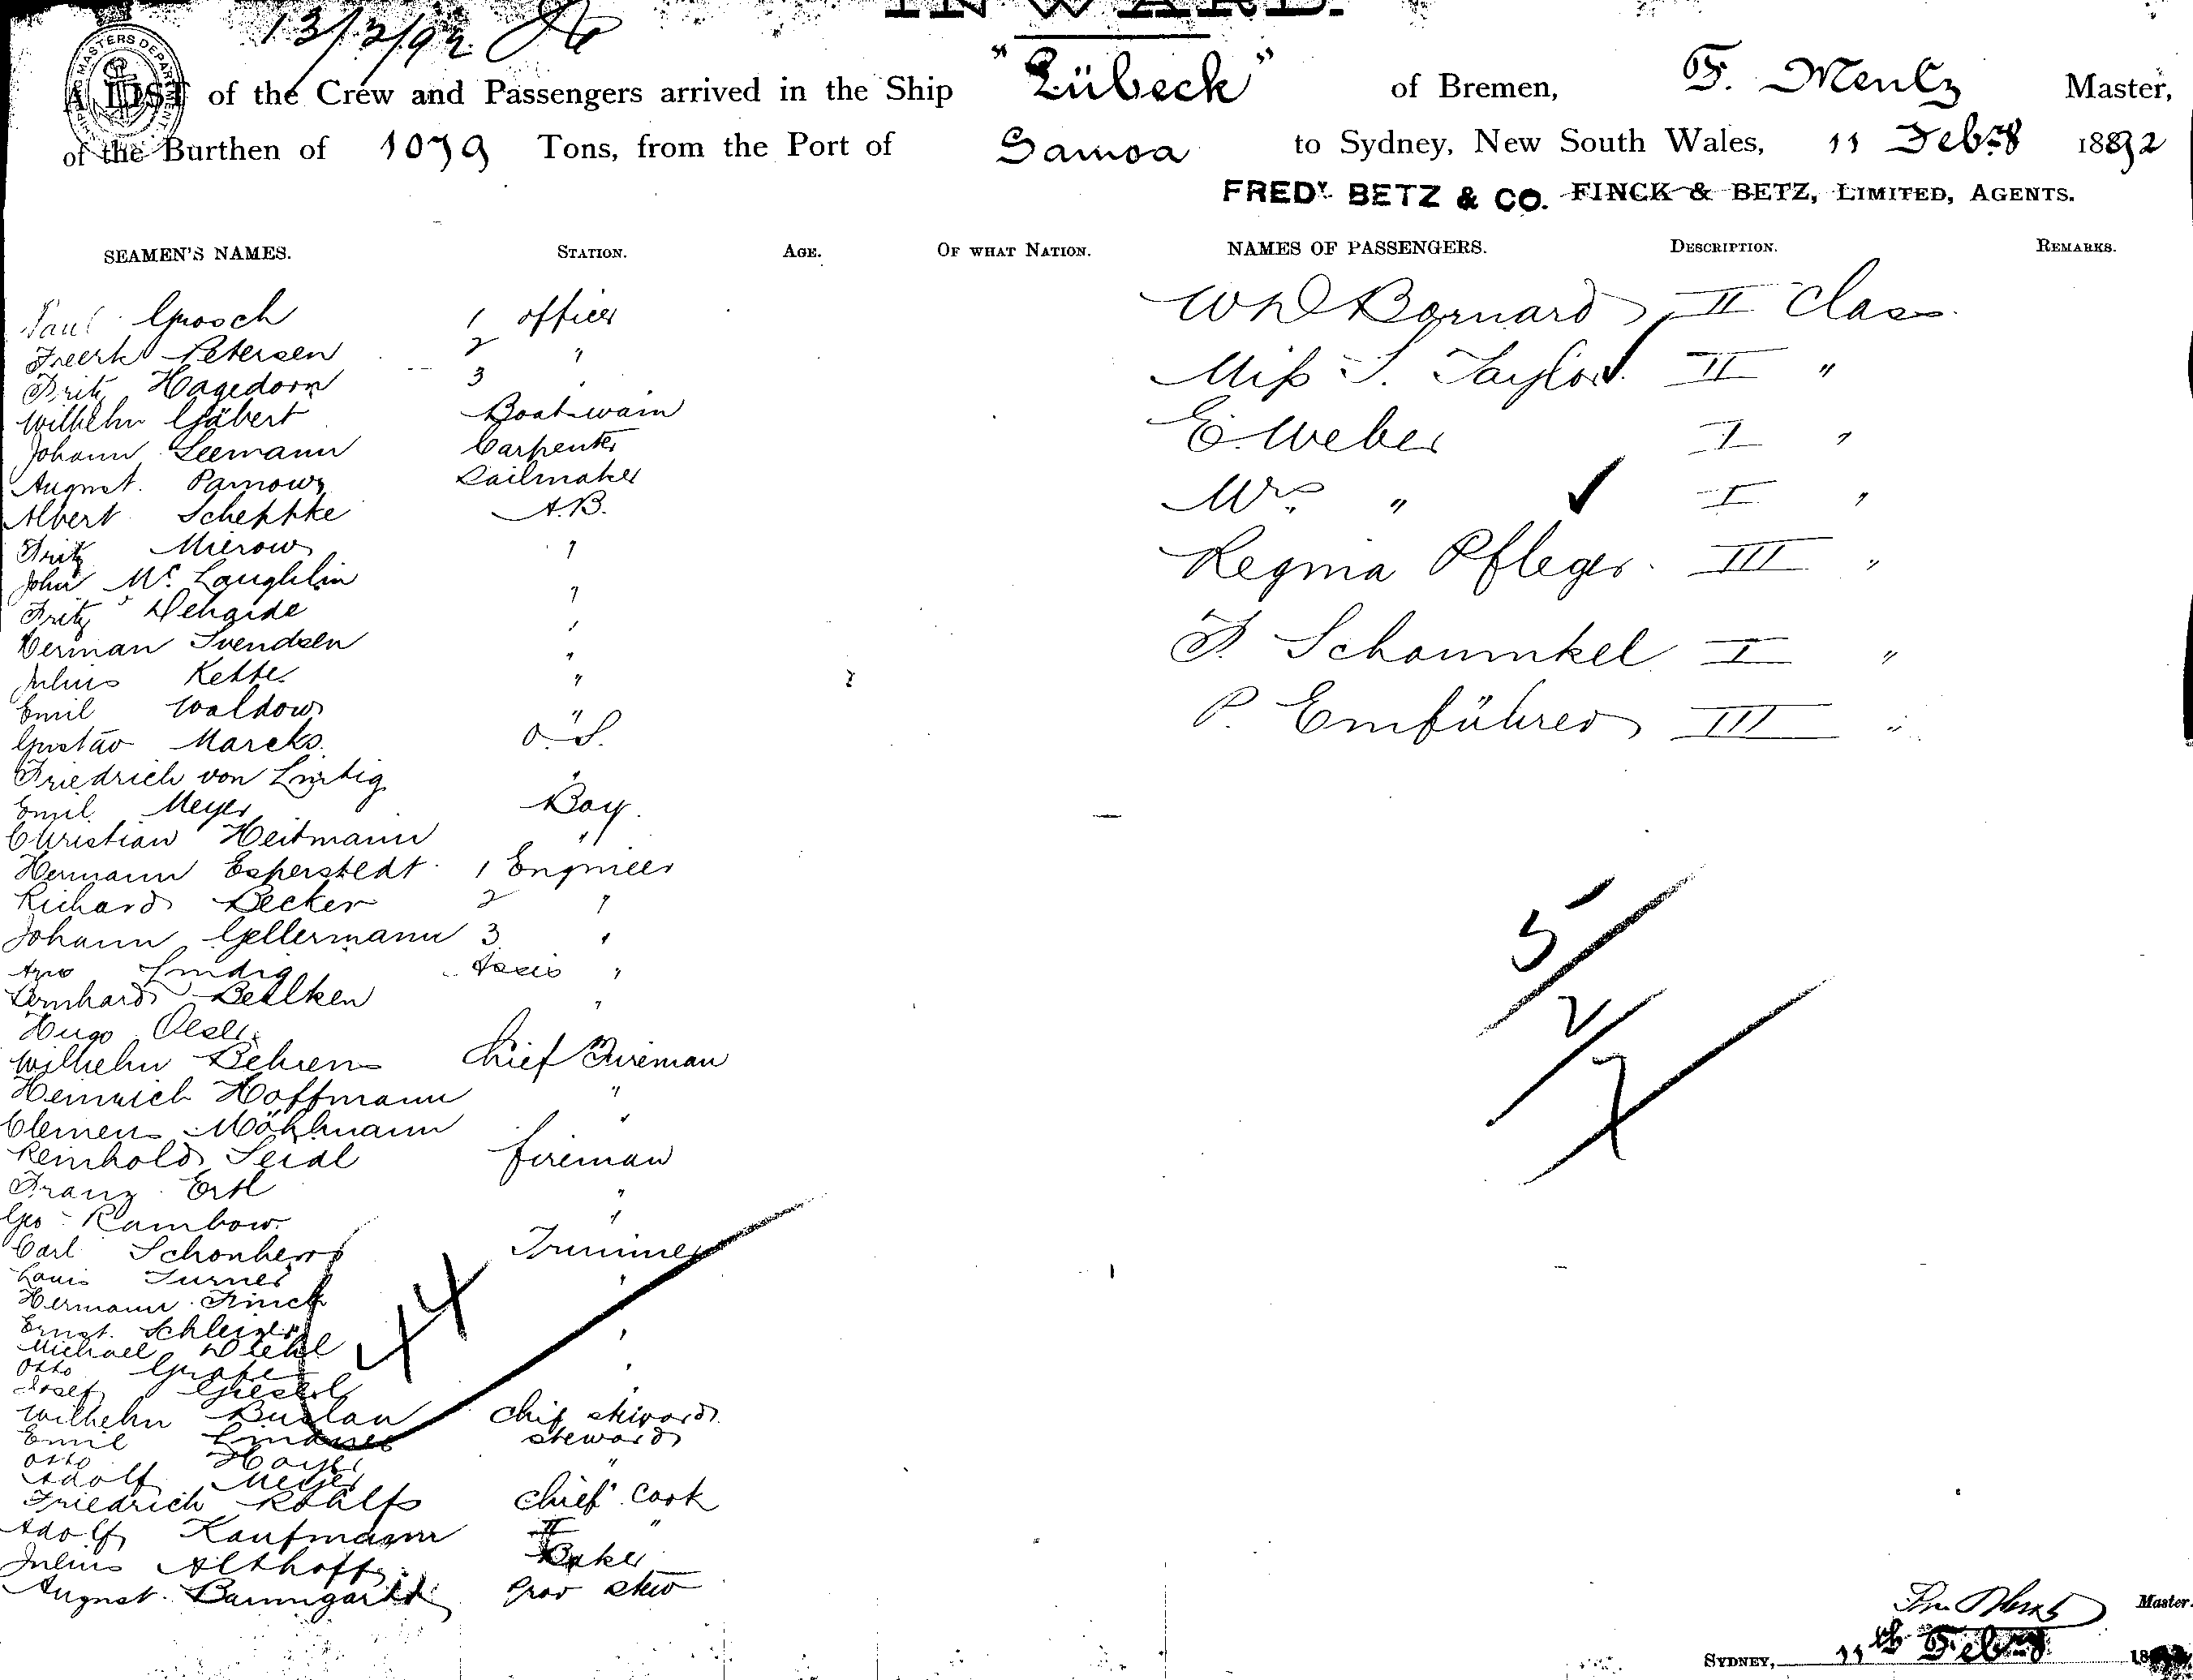 INWARD.
13/2/92
A LIST of the Crew and Passengers arrived in the Ship "Lübeck" of Bremen, F. Mentz Master,
of the Burthen of 1079 Tons, from the Port of Samoa to Sydney, New South Wales, 11 Febry 1892
FREDY. BETZ & CO. FINCK & BETZ, LIMITED, AGENTS.
SEAMEN'S NAMES. STATION. AGE. OF WHAT NATION. NAMES OF PASSENGERS. DESCRIPTION. REMARKS.
Paul Grosch 1 officer
Freerk Petersen 2 "
Fritz Hagedorn 3
Wilhelm Gäbert Boatswain
Johann Seemann Carpenter
August. Parnow Sailmaker
Albert Scheppke A.B.
Fritz Mierow "
John Mc. Laughlin "
Fritz Dehaide "
Herman Svendsen "
Julius Kette "
Emil Waldow "
Gustav Marcks. O.S.
Friedrich von "
Emil Meyer Boy.
Christian Heitmann "
Hermann Esperstedt 1 Engineer
Richard Becker 2 "
Johann Gellermann 3 "
Lindig "
Bernhard "
Hugo
Wilhelm Behrens Chief Fireman
Heinrich Hoffmann "
Clemens Möhlmann "
Reinhold Seidl fireman
Franz Ertl "
Geo Rambow. "
Carl Schonherr Trimmer
Louis Turner "
Hermann Finck
Ernst. "
Michael Diehl
Otto Grape "
Josef Giesel
Wilhelm Buslau Chief steward
Emil Lindner steward
Otto Hoyer "
Adolf Meyer
Friedrich Rohlfs Chief Cook
Adolf Kaufmann II "
Julius Althoff Baker
August. Baumgartel Prov stew
44
W D Barnard II Class
Miss S. Taylor II "
E. Weber I "
Mrs. " I "
Regina Pfleger III "
F. Schaumkel I "
P. Einführer III "
5/
2/
7
Master.
SYDNEY, 11th Febry 18